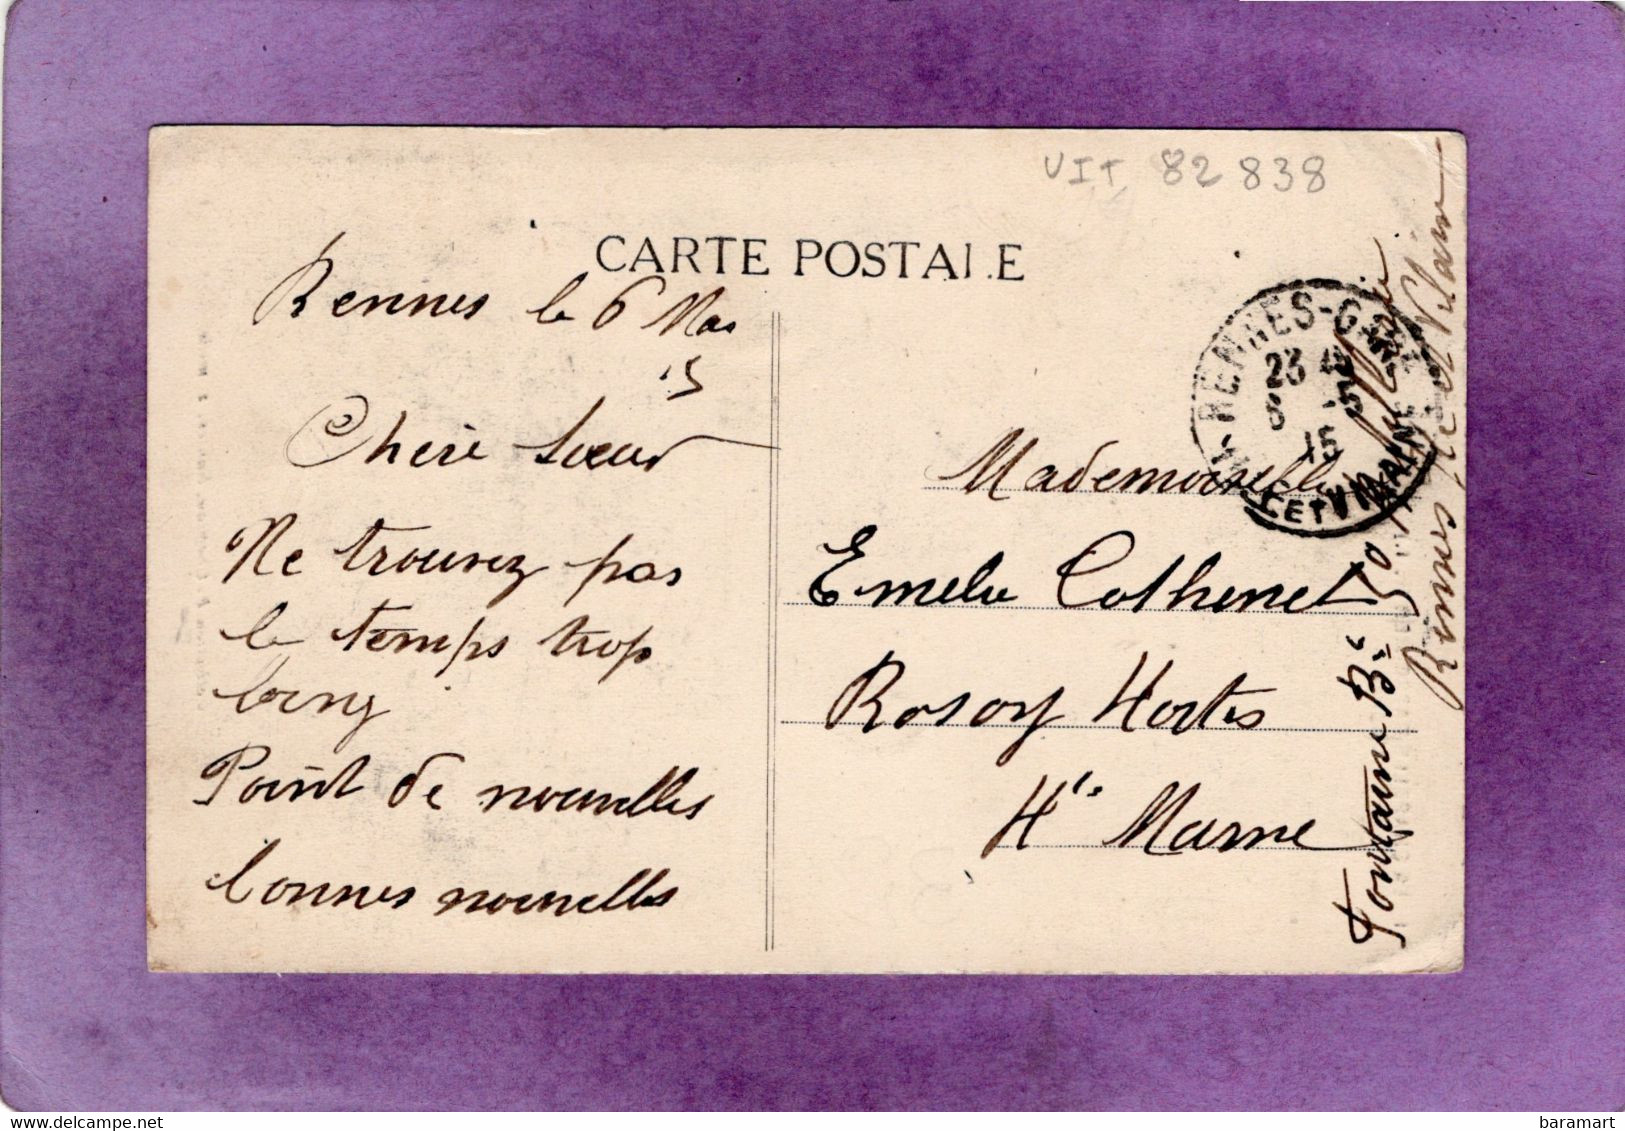 VIT 82 838
CARTE POSTALE
Rennes le 6 Mai
15
Chère Soeur
Ne trouvez pas
le temps trop
long
Point de nouvelles
bonnes nouvelles
RENNES-GARE
23
6 - 5
15
ILLE-ET-VILAINE
Mademoiselle
Emelie Cothenet
Rosoy Hortes
Hte Marne
Fontaine Ber 50
Rennes Ile et Vilaine
baramart